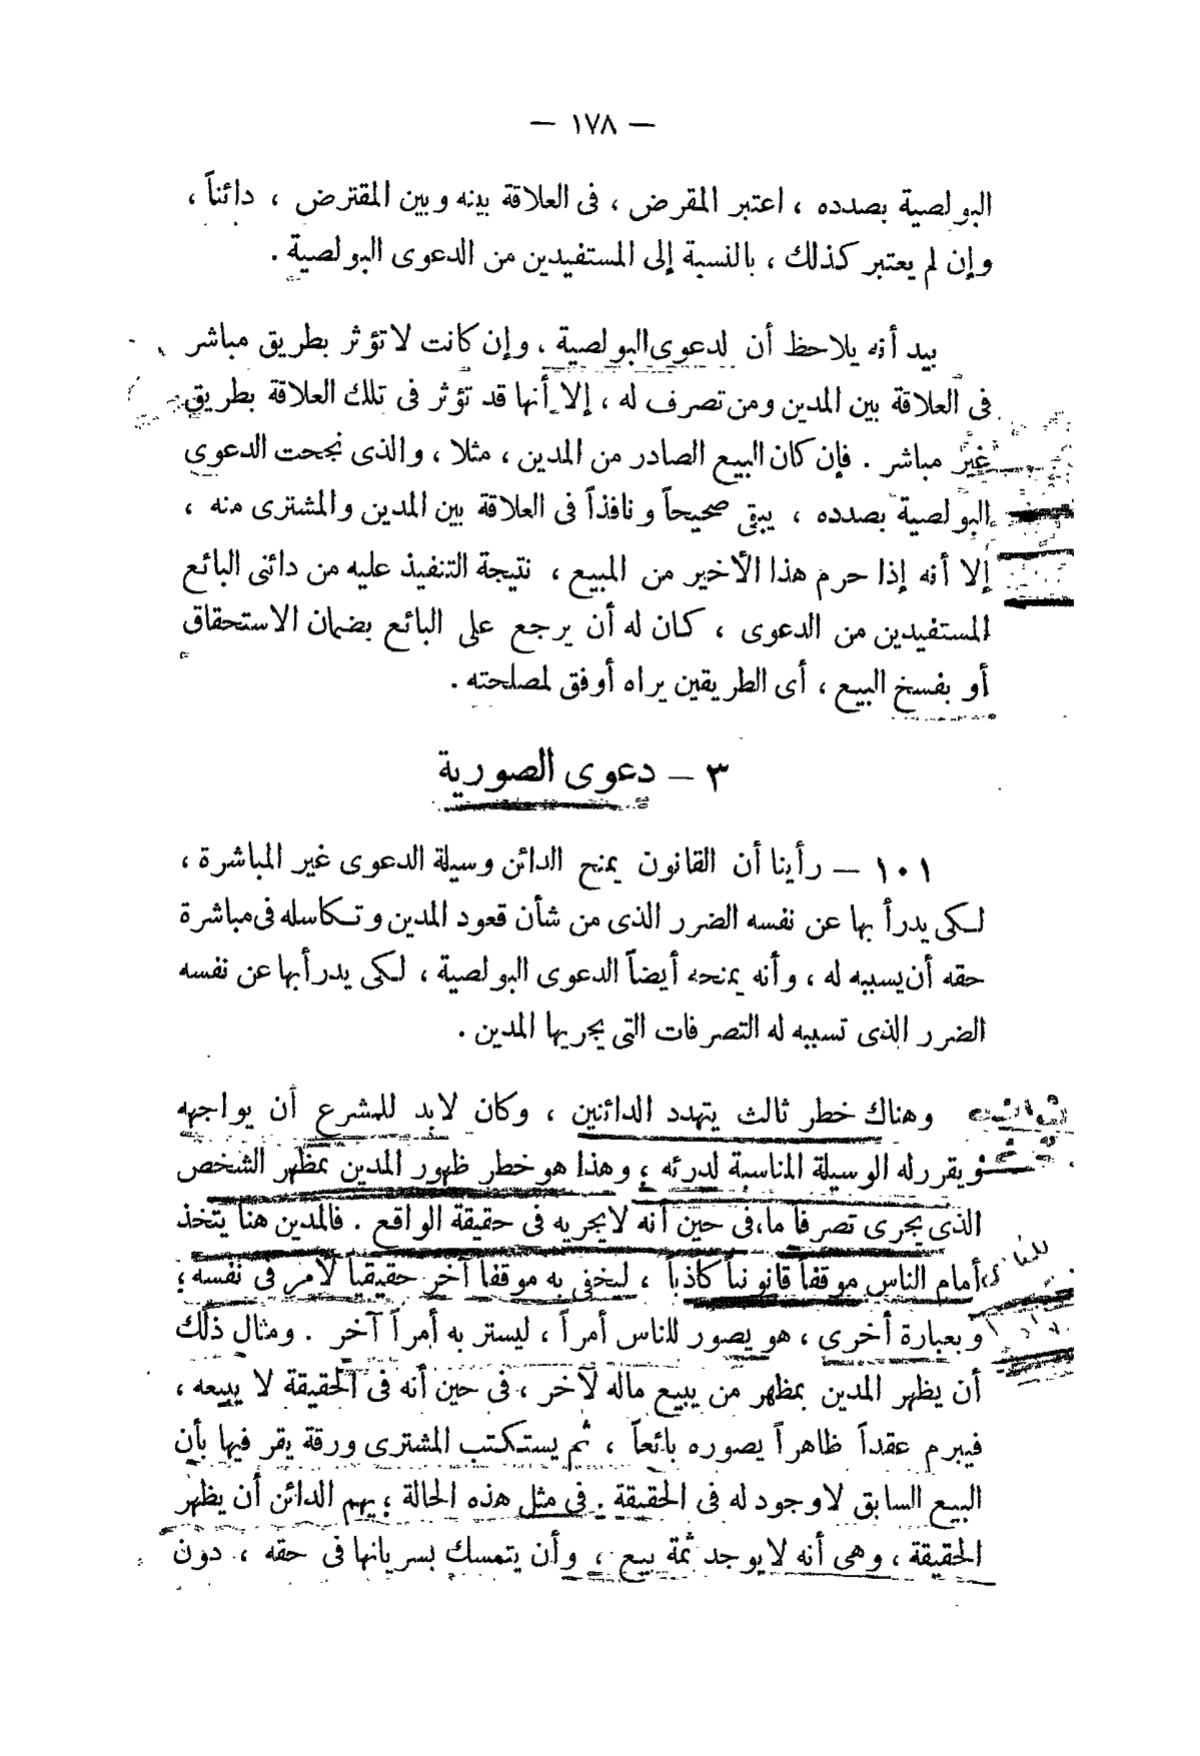 — ١٧٨ —
البولصية بصدده ، اعتبر المقرض ، فى العلاقة بينه وبين المقترض ، دائناً ،
وإن لم يعتبر كذلك ، بالنسبة إلى المستفيدين من الدعوى البولصية .
بيد أنه يلاحظ أن لدعوى البولصية ، وإن كانت لا تؤثر بطريق مباشر
فى العلاقة بين المدين ومن تصرف له ، إلا أنها قد تؤثر فى تلك العلاقة بطريق
غير مباشر . فإن كان البيع الصادر من المدين ، مثلا ، والذى نجحت الدعوى
البولصية بصدده ، يبقى صحيحاً ونافذاً فى العلاقة بين المدين والمشترى منه ،
إلا أنه إذا حرم هذا الأخير من المبيع ، نتيجة التنفيذ عليه من دائنى البائع
المستفيدين من الدعوى ، كان له أن يرجع على البائع بضمان الاستحقاق
أو بفسخ البيع ، أى الطريقين يراه أوفق لمصلحته .
٣ — دعوى الصورية
١٠١ — رأينا أن القانون يمنح الدائن وسيلة الدعوى غير المباشرة ،
لكى يدرأ بها عن نفسه الضرر الذى من شأن قعود المدين وتكاسله فى مباشرة
حقه أن يسببه له ، وأنه يمنحه أيضاً الدعوى البولصية ، لكى يدرأ بها عن نفسه
الضرر الذى تسببه له التصرفات التى يجريها المدين .
وهناك خطر ثالث يتهدد الدائنين ، وكان لابد للمشرع أن يواجهه
ويقرر له الوسيلة المناسبة لدرئه ؛ وهذا هو خطر ظهور المدين بمظهر الشخص
الذى يجرى تصرفا ما، فى حين أنه لا يجريه فى حقيقة الواقع . فالمدين هنا يتخذ
أمام الناس موقفاً قانونياً كاذباً ، ليخفى به موقفا آخر حقيقيا لأمر فى نفسه ؛
وبعبارة أخرى ، هو يصور للناس أمراً ، ليستر به أمراً آخر . ومثال ذلك
أن يظهر المدين بمظهر من يبيع ماله لآخر ، فى حين أنه فى الحقيقة لا يبيعه ،
فيبرم عقداً ظاهراً يصوره بائعاً ، ثم يستكتب المشترى ورقة يقر فيها بأن
البيع السابق لا وجود له فى الحقيقة . فى مثل هذه الحالة ؛ يهم الدائن أن يظهر
الحقيقة ، وهى أنه لا يوجد ثمة بيع ، وأن يتمسك بسريانها فى حقه ، دون